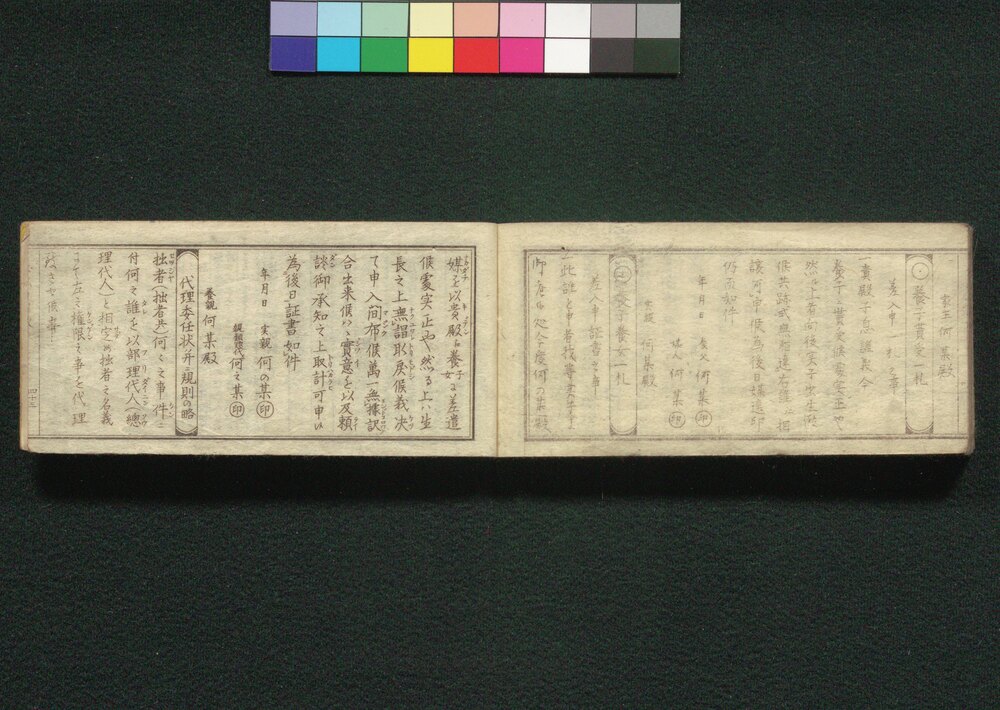 家主何某殿
養子貰受一札
差申一札之事
一貴殿子息誰義今
養子ニ貰受候處実正也
然ル上者向後実子出生致
候共跡式無相違右誰ニ相
譲可申候為後日媒連印
仍而如件
年月日 養父 何某印
媒人 何某印
実親 何某殿
養子養女一札
差入申証書之事
一此誰と申者我等実子
媒を以貴殿ゟ養子女ニ差遣
候處実正也然る上ハ生
長之上無謂取戻候義决
て申入間布候萬一無據訳
合出来候ハヽ實意を以及頼
談御承知之上取計可申い
為後日証書如件
年月日 実親 何の某印
親類惣代 何々某印
養親 何某殿
代理委任状并ニ規則の略
拙者(拙者共)何々之事件ニ
付何々誰を以部理代人(總
理代人)と相定め拙者之名義
にて左之権限之事を代理
致さセ候事
四十三